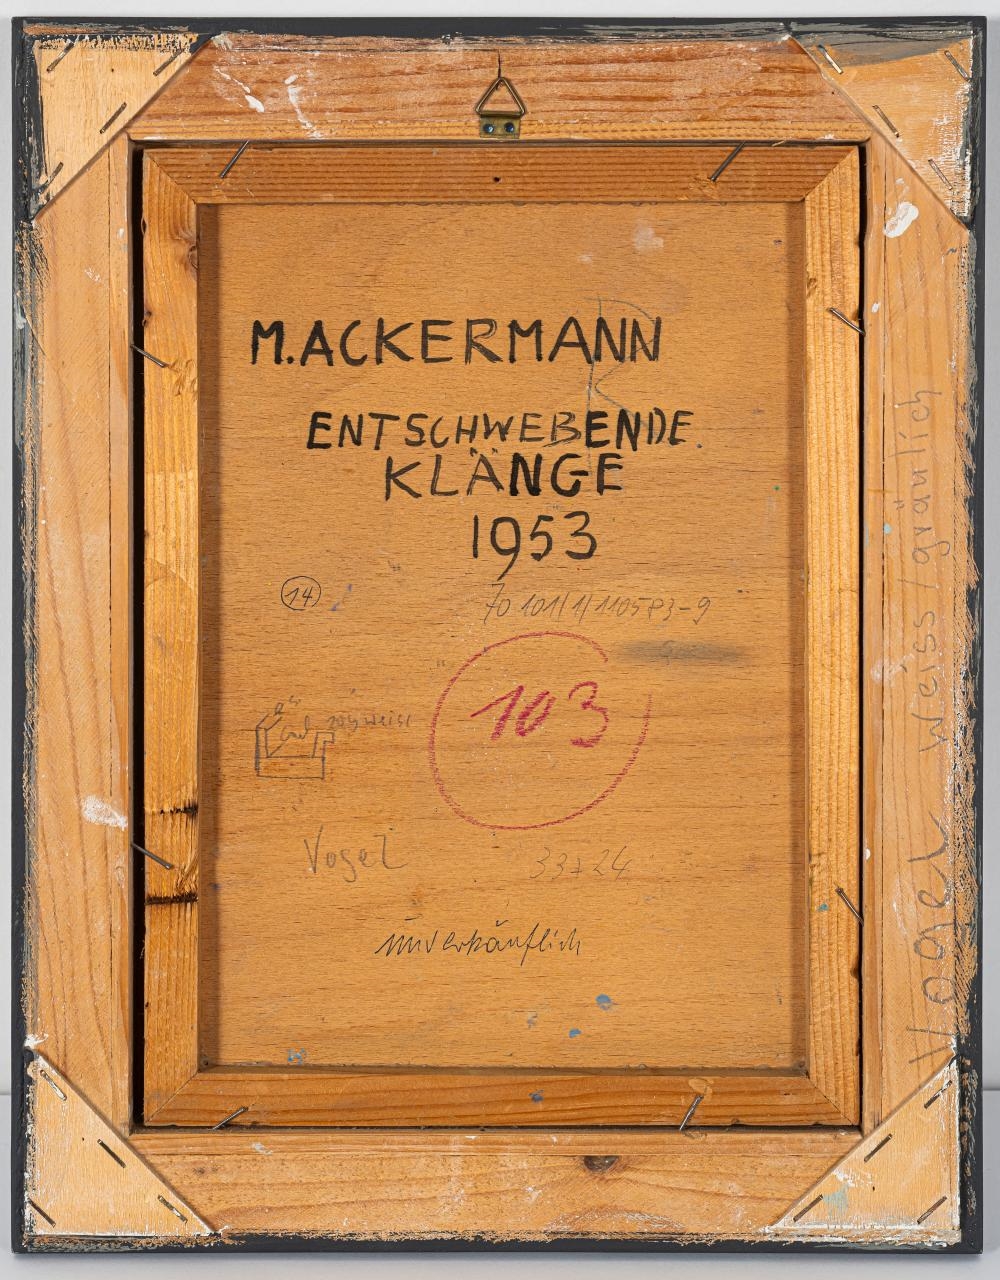 M.ACKERMANN
ENTSCHWEBENDE.
KLÄNGE
1953
14
70 101/1/110583-9
103
Vogel
33x24
unverkäuflich
Vogel weiss/gräulich